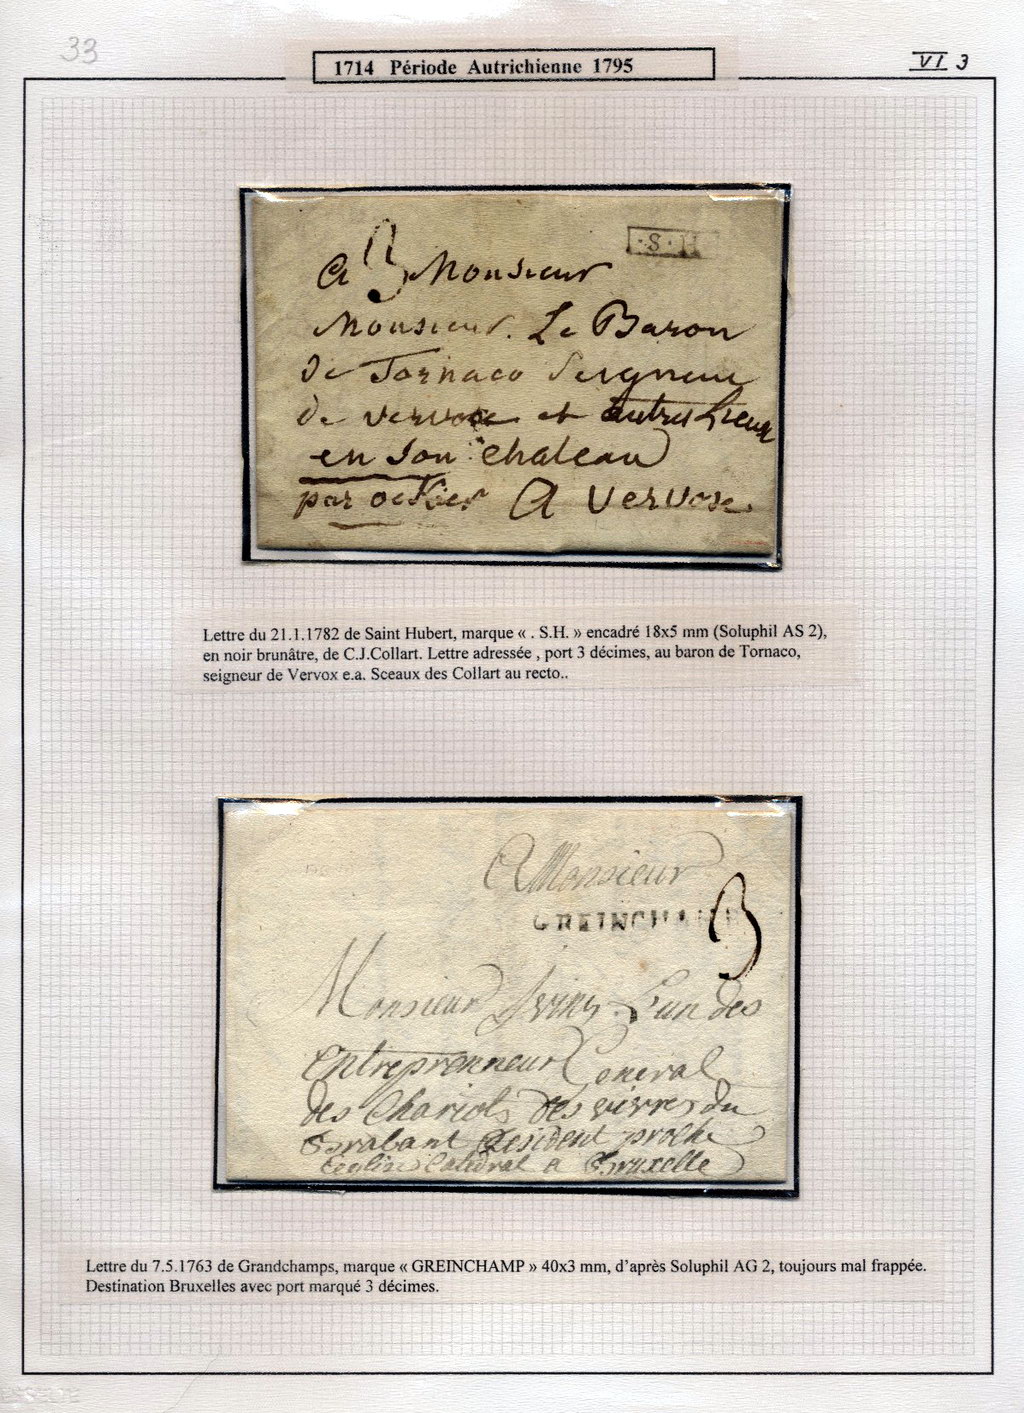 33
1714 Période Autrichienne 1795
VI 3
·S·H
3
A Monsieur
Monsieur. Le Baron
de Tornaco Seigneur
de vervox et autres Lieux
en Son chateau
par A vervox.
Lettre du 21.1.1782 de Saint Hubert, marque « . S.H. » encadré 18x5 mm (Soluphil AS 2),
en noir brunâtre, de C.J.Collart. Lettre adressée , port 3 décimes, au baron de Tornaco,
seigneur de Vervox e.a. Sceaux des Collart au recto..
A Monsieur
GREINCHAMP
3
Monsieur L'un des
Entreprenneur General
des Chariots des vivres du
Brabant Resident proche
Leglise Catedral a Bruxelle
Lettre du 7.5.1763 de Grandchamps, marque « GREINCHAMP » 40x3 mm, d'après Soluphil AG 2, toujours mal frappée.
Destination Bruxelles avec port marqué 3 décimes.